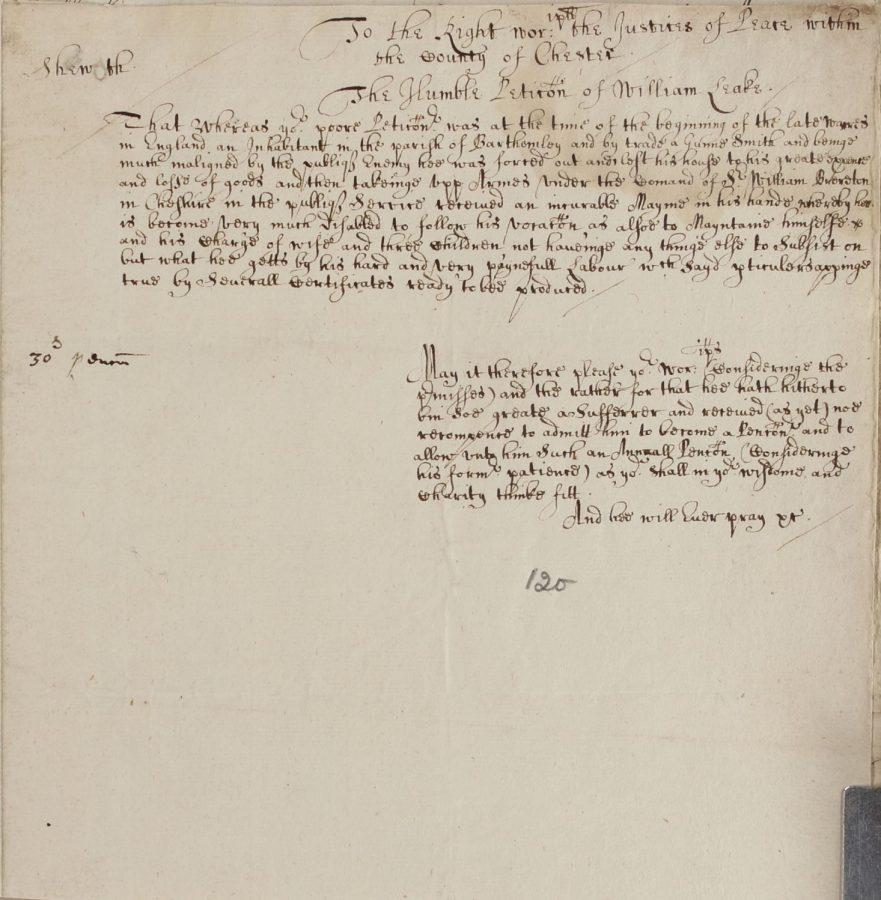 To the Right wor:ipll the Justices of Peace within
the County of Chester.
Sheweth
The Humble Peticon of William Leake.
That Whereas yor. poore Peticonr. was at the time of the beginning of the late warres
in England, an Inhabitant in the parish of Barthemley and by trade a Gunne Smith and beinge
much maligned by the publiq Enemy hee was forced out and left his house to his greate expence
and losse of goods and then takeinge upp Armes under the Comand of Sr. William Brereton
in Cheshire in the publiq Service received an incurable Mayme in his hande whereby hee
is become very much disabled to follow his vocacon as alsoe to Mayntaine himselfe &
and his Charge of wife and three Children not haveinge any thinge else to Subsist on
but what hee getts by his hard and very paynefull Labour wch Sayd pticulers appinge
true by Severall Certificates ready to bee produced.
30s pencon
May it therefore please yor. wor:ipps (Consideringe the
pmisses) and the rather for that hee hath hitherto
bin soe greate a Sufferrer and received (as yet) noe
recompence to admitt him to become a Penconr. and to
allow unto him Such an Annuall Pencon (Consideringe
his formr. patience) as yor. Shall in yor. wisdome and
Charity thinke fitt.
And hee will Ever pray &c.
120